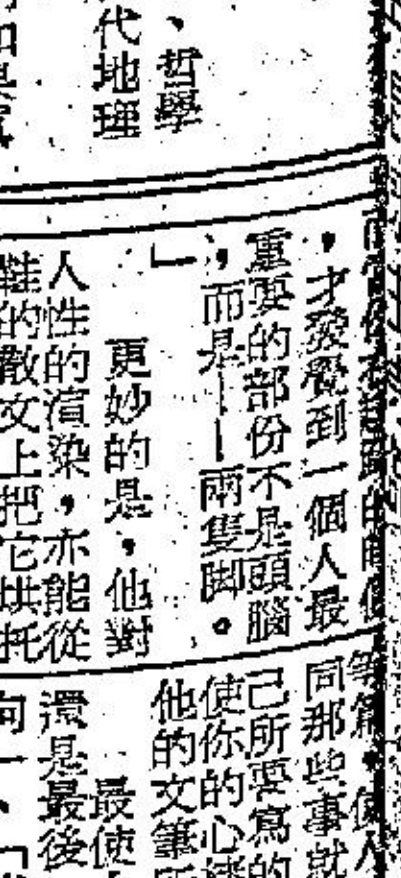 、哲學
代地理
，才發覺到一個人最
重要的部份不是頭腦
，而是——兩隻脚。
」
更妙的是，他對
人性的渲染，亦能從
鞋的散文上把它烘托
同那些事就
己所要寫的
使你的心
他的文筆
最使
還是最後
向一、「